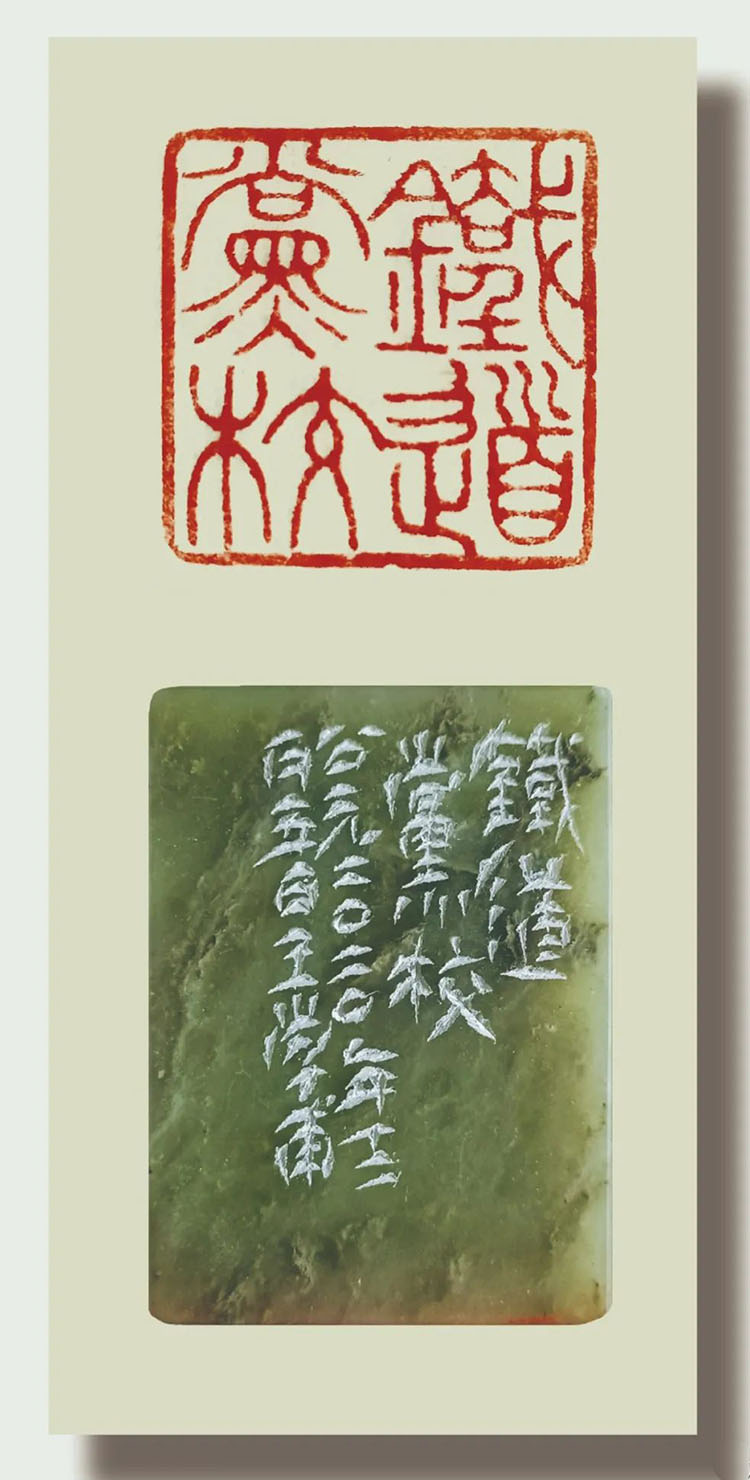 鐵道
黨校
鐵道
黨校
公元二〇二〇年十二
月五日王學甫